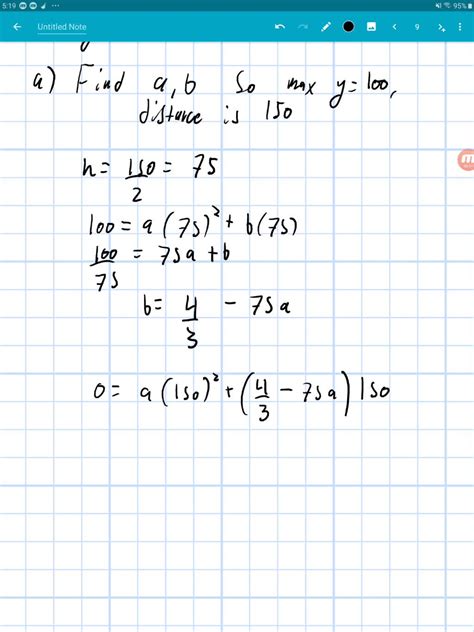 5:19 95%
Untitled Note 9
a) Find a, b so max y=100,
distance is 150
h = 150/2 = 75
100 = a(75)² + b(75)
100/75 = 75a + b
b = 4/3 - 75a
0 = a(150)² + (4/3 - 75a)150